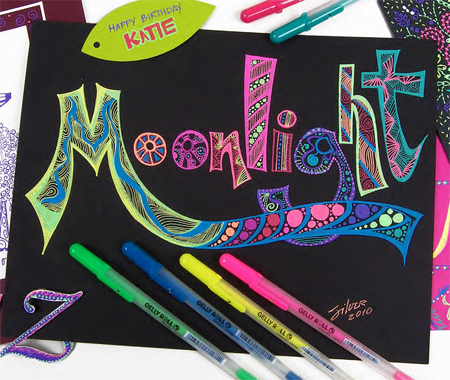 HAPPY BIRTHDAY
KATIE
Moonlight
GELLY ROLL
GELLY ROLL
GELLY ROLL
GELLY ROLL
Silver
2010